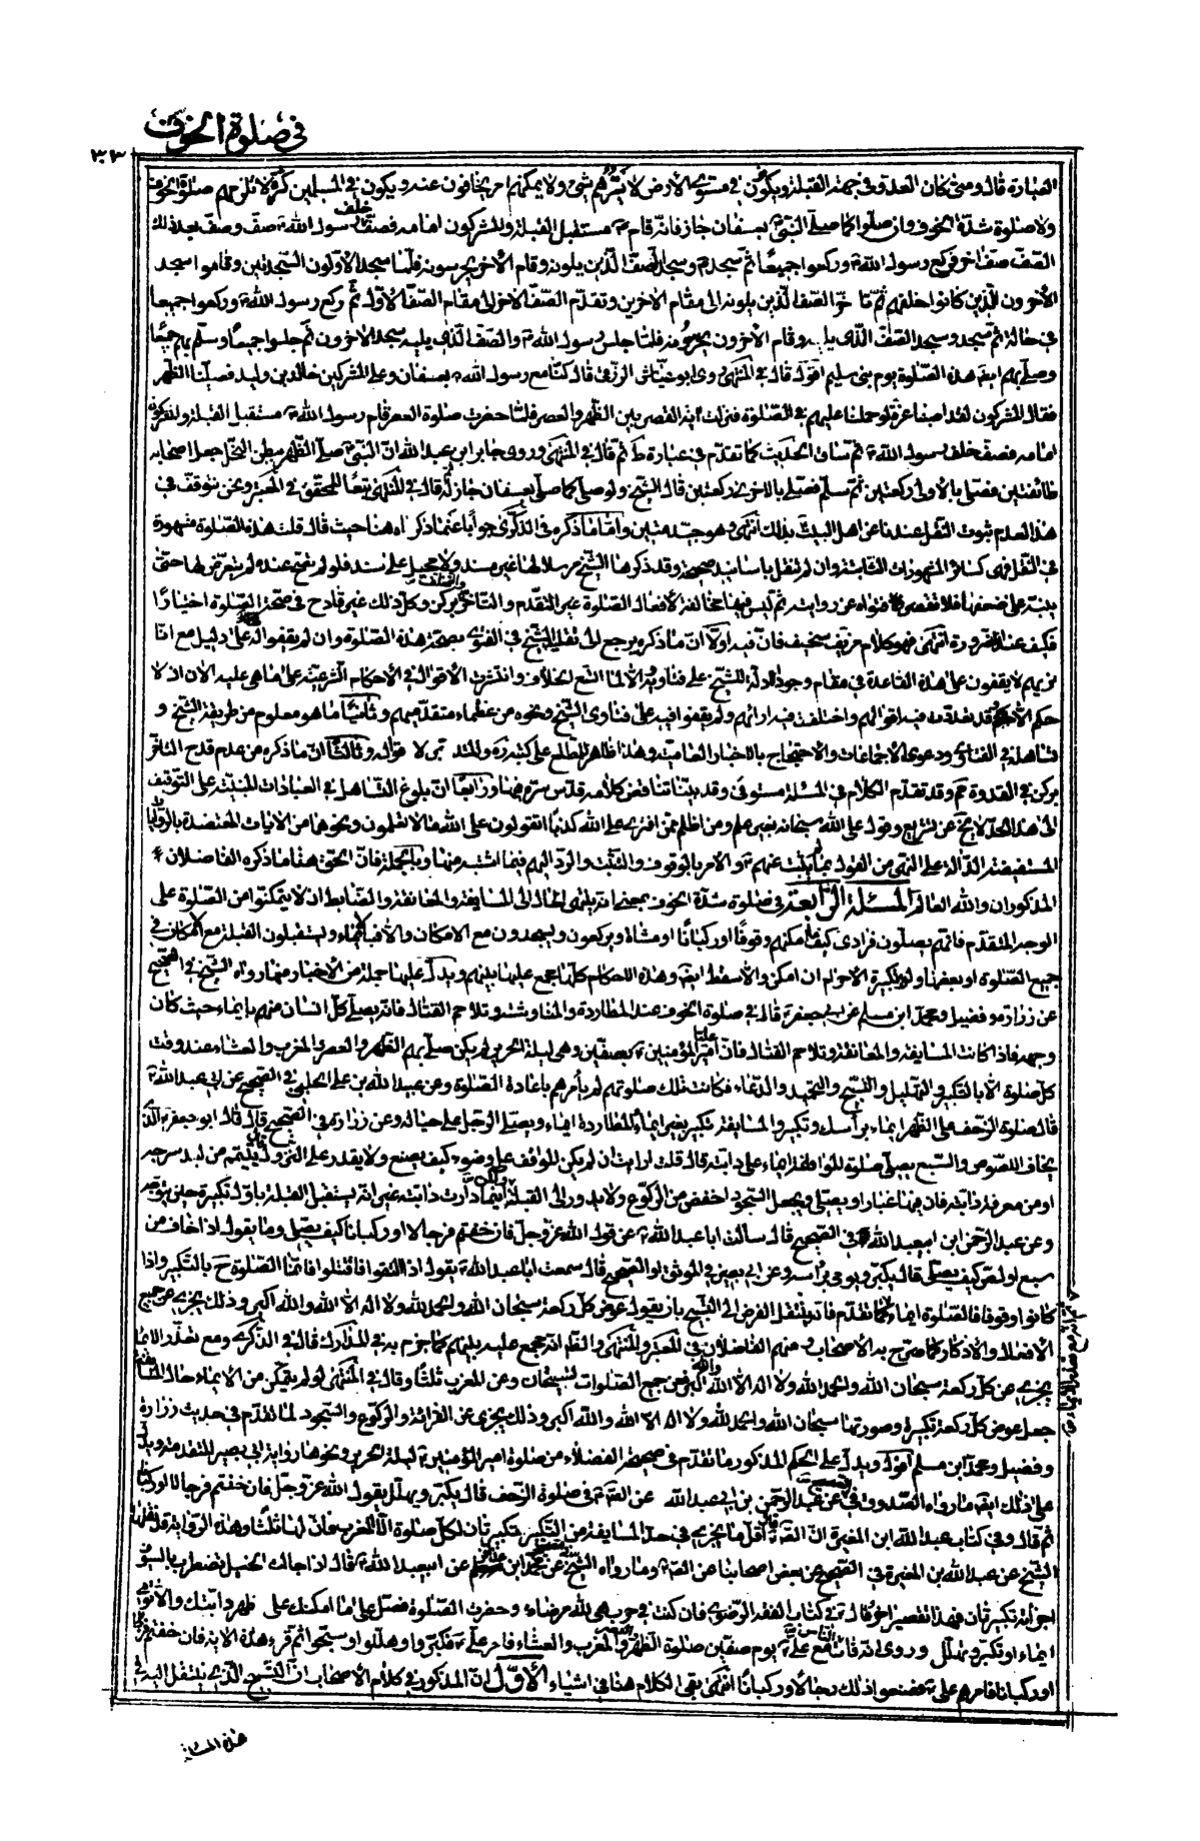 في صلوة الخوف
٣٠٣
العبارة قال ومتى كان العدو في جهة القبلة ويكون في مستوى الارض لا يسترهم شيء ولا يمكنهم امر يخافون عنه ويكون في المسلمين كثرة لا تلزمهم صلوة الخوف
ولا صلوة شدة الخوف وان صلوا كما صلى النبي بعسفان جاز فانه قام مستقبل القبلة والمشركون امامه فصف خلف رسول الله صف وصف بعد ذلك
الصف صف اخر فركع رسول الله وركعوا جميعا ثم سجد وسجد الصف الذين يلونه وقام الاخرون يحرسونه فلما سجد الاولون السجدتين وقاموا سجد
الاخرون الذين كانوا خلفهم ثم تاخر الصف الذين يلونه الى مقام الاخرين وتقدم الصف الاخر الى مقام الصف الاول ثم ركع رسول الله وركعوا جميعا
في حالة ثم سجد وسجد الصف الذي يليه وقام الاخرون يحرسونه فلما جلس رسول الله والصف الذي يليه سجد الاخرون ثم جلسوا جميعا وسلم بهم جميعا
وصلى بهم ايضا هذه الصلوة يوم بني سليم اقول قال في المنتهى روى ابو عياش الزرقي قال كنا مع رسول الله بعسفان وعلى المشركين خالد بن وليد فصلينا الظهر
فقال المشركون لقد اصبنا غرة لو حملنا عليهم في الصلوة فنزلت اية القصر بين الظهر والعصر فلما حضرت صلوة العصر قام رسول الله مستقبل القبلة والمشركون
امامه فصف خلف رسول الله ثم ساق الحديث كما تقدم في عبارة ط ثم قال في المنتهى وروى جابر ابن عبد الله ان النبي صلى الظهر ببطن النخل جعل اصحابه
طائفتين فصلى بالاولى ركعتين ثم سلم فصلى بالاخرى ركعتين قال الشيخ ولو صلى كما صلى بعسفان جاز له قال في المنتهى تبعا للمحقق في المعتبر ونحن نتوقف في
هذا لعدم ثبوت النقل عندنا عن اهل البيت بذلك انتهى وهو جيد متين واما ما ذكره في الذكرى جوابا عما ذكراه هنا حيث قال قلت هذه الصلوة مشهورة
في النقل فهي كسائر المشهورات الثابتة وان لم تنقل باسانيد صحيحة وقد ذكرها الشيخ مرسلا لها غير مسند ولا محيل على سند فلو لم تصح عنده لم يتعرض لها حتى
ينبه على ضعفها فلا تقصر فتواه عن روايته ثم ليس فيها مخالفة لافعال الصلوة غير التقدم والتاخر والتخلف بركن وكل ذلك غير قادح في صحة الصلوة اختيارا
فكيف عند الضرورة انتهى فهو كلام مزيف سخيف فان فيه اولا ان ما ذكره يرجع الى تقليد الشيخ في الفتوى بصحة هذه الصلوة وان لم يقفوا له على دليل مع انا
نريهم لا يقفون على هذه القاعدة في مقام وجود ادلة للشيخ على فتاويه والا لما اتسع الخلاف وانتشرت الاقوال في الاحكام الشرعية على ما هي عليه الان اذ لا
حكم الا وقد تعددت فيه اقوالهم واختلفت فيه ارائهم ولم يقفوا فيه على فتاوى الشيخ ونحوه من عظماء متقدميهم وثانيا ما هو معلوم من طريقة الشيخ و
تساهله في الفتاوى ودعوى الاجماعات والاحتجاج بالاخبار العامية وهذا ظاهر للمطلع على كتبه والمتدبر لاقواله وثالثا ان ما ذكره من عدم قدح التاخر
بركن في القدوة وقد تقدم الكلام في المسئلة مستوفى وقد بينا تناقض كلامه قدس سره فيها ورابعا ان بلوغ التساهل في العبادات المبنية على التوقيف
الى هذا الحد لا يخ عن تشريع وقول على الله سبحانه بغير علم ومن اظلم ممن افترى على الله كذبا اتقولون على الله ما لا تعلمون ونحوها من الايات المعتضدة بالروايات
المستفيضة الدالة على النهي من القول بما لم يثبت عنهم والامر بالوقوف والتثبت والرد اليهم فيما اشتبه منها وبالجملة فان الحق هنا ما ذكره الفاضلان
المذكوران والله العالم المسئلة الرابعة في صلوة شدة الخوف بمعنى انه ينتهي الحال الى المسايفة والمعانقة والضابط ان لا يتمكنوا من الصلوة على
الوجه المتقدم فانهم يصلون فرادى كيف ما امكنهم وقوفا او ركبانا او مشاة ويركعون ويسجدون مع الامكان والا فبالايماء ويستقبلون القبلة مع الامكان في
جميع الصلوة او بعضها ولو بتكبيرة الاحرام ان امكن والا سقط ايضا وهذه الاحكام كلها مجمع عليها بينهم ويدل عليها جملة من الاخبار ومنها ما رواه الشيخ في الصحيح
عن زرارة وفضيل ومحمد ابن مسلم عن ابي جعفر قال في صلوة الخوف عند المطاردة والمناوشة وتلاحم القتال فانه يصلي كل انسان منهم بايماء حيث كان
وجهه فاذا كانت المسايفة والمعانقة وتلاحم القتال فان امير المؤمنين عليا بصفين وهي ليلة الهرير لم يكن صلى بهم الظهر والعصر والمغرب والعشاء عند وقت
كل صلوة الا بالتكبير والتهليل والتسبيح والتحميد والدعاء فكانت تلك صلوتهم لم يأمرهم باعادة الصلوة وعن عبيد الله بن علي الحلبي في الصحيح عن ابي عبد الله
قال صلوة الزحف على الظهر ايماء برأسك وتكبير والمسايفة تكبير بغير ايماء والمطاردة ايماء ويصلي الرجل على حياله وعن زرارة في الصحيح قال قال ابو جعفر الذي
يخاف اللصوص والسبع يصلي صلوة المواقفة ايماء على دابته قال قلت ارايت ان لم يكن المواقف على وضوء كيف يصنع ولا يقدر على النزول قال يتيمم من لبد سرجه
او من معرفة دابته فان فيها غبارا ويصلي ويجعل السجود اخفض من الركوع ولا يدور الى القبلة ولكن اينما دارت دابته غير انه يستقبل القبلة باول تكبيرة حين يتوجه
وعن عبد الرحمن ابن ابي عبد الله في الصحيح قال سالت ابا عبد الله عن قول الله عز وجل فان خفتم فرجالا او ركبانا كيف يصلي وما يقول اذا خاف من
سبع او لص كيف يصلي قال يكبر ويومي برأسه وعن ابي بصير في الموثق او الصحيح قال سمعت ابا عبد الله يقول اذا التقوا فاقتتلوا فانما الصلوة ح بالتكبير واذا
كانوا وقوفا فالصلوة ايماء كما تقدم فانه ينتقل الفرض الى التسبيح بان يقول عوض كل ركعة سبحان الله والحمد لله ولا اله الا الله والله اكبر وذلك يجزي عن جميع
الافعال والاذكار كما صرح به الاصحاب ومنهم الفاضلان في المعتبر والمنتهى والظ انه مجمع عليه بينهم كما جزم به في المدارك قال في الذكرى ومع تعذر الايماء
يجزي عن كل ركعة سبحان الله والحمد لله ولا اله الا الله والله اكبر فعن جميع الصلوات تسبيحتان وعن المغرب ثلثا وقال في المنتهى لو لم يتمكن من الايماء حال المسايفة
جعل عوض كل ركعة تكبيرة وصورتها سبحان الله والحمد لله ولا اله الا الله والله اكبر وذلك يجزي عن القرائة والركوع والسجود لما تقدم في حديث زرارة
وفضيل ومحمد ابن مسلم اقول ويدل على الحكم المذكور ما تقدم في صحيحة الفضلاء من صلوة امير المؤمنين ليلة الهرير ونحوها رواية ابي بصير المتقدمة ويدل
على ذلك ايضا ما رواه الصدوق في الصحيح عن عبد الرحمن بن ابي عبد الله عن الصادق في صلوة الزحف قال يكبر ويهلل يقول الله عز وجل فان خفتم فرجالا او ركبانا
ثم قال وفي كتاب عبد الله ابن المغيرة ان الصادق قال اقل ما يجزي في حد المسايفة من التكبير تكبيرتان لكل صلوة الا المغرب فان لها ثلثا وهذه الرواية قد نقلها
الشيخ عن عبد الله بن المغيرة في الصحيح عن بعض اصحابنا عن الصادق وما رواه الشيخ عن محمد ابن عن ابي عبد الله قال اذا جالت الخيل تضطرب بالسيوف
اجزأه تكبيرتان فهذا تقصير اخر وقال في كتاب الفقه الرضوي فان كنت في حرب هي لله رضاء وحضرت الصلوة فصل على ما امكنك على ظهر دابتك والا تومي
ايماء او تكبر وتهلل وروي انه فات الناس مع علي يوم صفين صلوة الظهر والعصر والمغرب والعشاء فامر علي فكبروا وهللوا وسبحوا ثم قرء هذه الاية فان خفتم فرجالا
او ركبانا فامرهم علي فصنعوا ذلك رجالا او ركبانا انتهى بقي الكلام هنا في اشياء الاول ان المذكور في كلام الاصحاب ان التسبيح الذي ينتقل اليه في
هذه الحالة